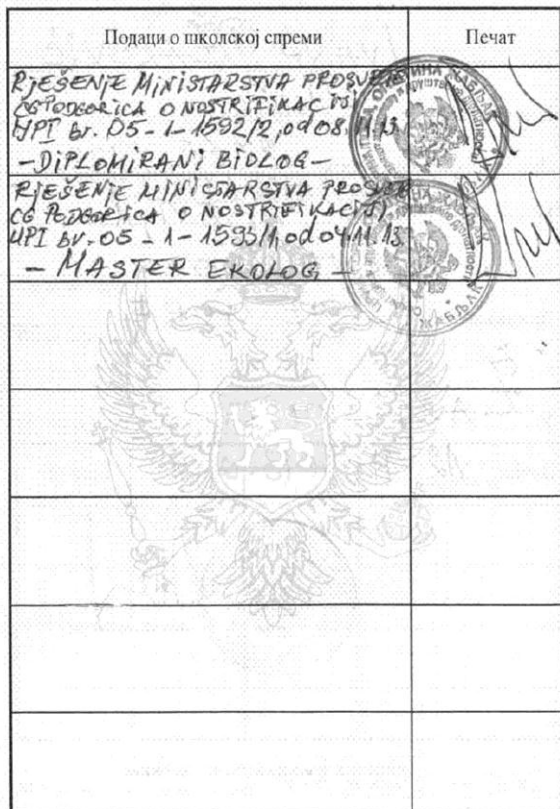 Подаци о школској спреми
Печат
RJEŠENJE MINISTARSTVA PROSVJETE
CG PODGORICA O NOSTRIFIKACIJI
UPI br. 05-1-1592/2, od 08.11.13.
- DIPLOMIRANI BIOLOG -
RJEŠENJE MINISTARSTVA PROSVJETE
CG PODGORICA O NOSTRIFIKACIJI
UPI br. 05-1-1593/1, od 04.11.13.
- MASTER EKOLOG -
ОПШТИНА ЖАБЉАК
ЖАБЉАК